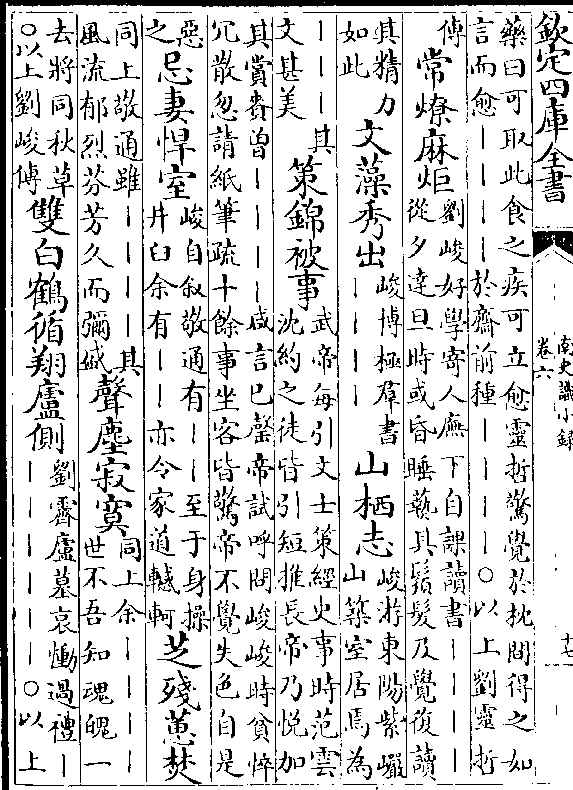 欽定四庫全書
南史識小録
卷六
十七
藥曰可取此食之疾可立愈靈哲驚覺於枕間得之如
言而愈丨丨丨丨於齋前種丨丨丨丨○以上劉靈哲
傳
常燎麻炬
劉峻好學寄人廡下自課讀書丨丨丨丨
從夕達旦時或昏睡爇其鬚髮及覺復讀
其精力
如此
文藻秀出
峻博極羣書
丨丨丨丨
山栖志
峻游東陽紫巖
山築室居焉為
丨丨丨其
文甚美
策錦被事
武帝每引文士策經史事時范雲
沈約之徒皆引短推長帝乃悅加
其賞賚曾丨丨丨丨咸言已罄帝試呼問峻峻時貧悴
冗散忽請紙筆疏十餘事坐客皆驚帝不覺失色自是
惡
之
忌妻悍室
峻自叙敬通有丨丨至于身操
井臼余有丨丨亦令家道轗軻
芝殘蕙焚
同上敬通雖丨丨丨丨其
風流郁烈芬芳久而彌盛
聲塵寂寞
同上余丨丨丨丨
世不吾知魂魄一
去將同秋草
○以上劉峻傳
雙白鶴循翔廬側
劉霽廬墓哀慟過禮丨
丨丨丨丨丨丨○以上